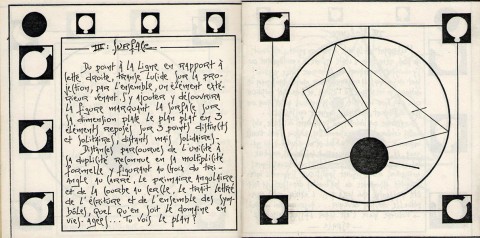 III : SURFACE
Du point à la Ligne en RAPPORT à
cette droite, transe lucide sur la pro-
jection, par l'ensemble, un élément exté-
rieur venant s'y ajouter y découvrira
la figure marquant la surface sur
sa dimension plate le plan plat en 3
éléments reposés sur 3 points distincts
et solitaires, distants mais solidaires.
Distances parcourues de l'unicité à
sa duplicité reconnue en sa multiplicité
formelle y figurant au choix du tri-
angle au carré, le primaire angulaire
et de la courbe au cercle, le trait lettré
de l'écriture et de l'ensemble des sym-
boles, quel qu'en soit le domaine en
... Tu vois le plan ?